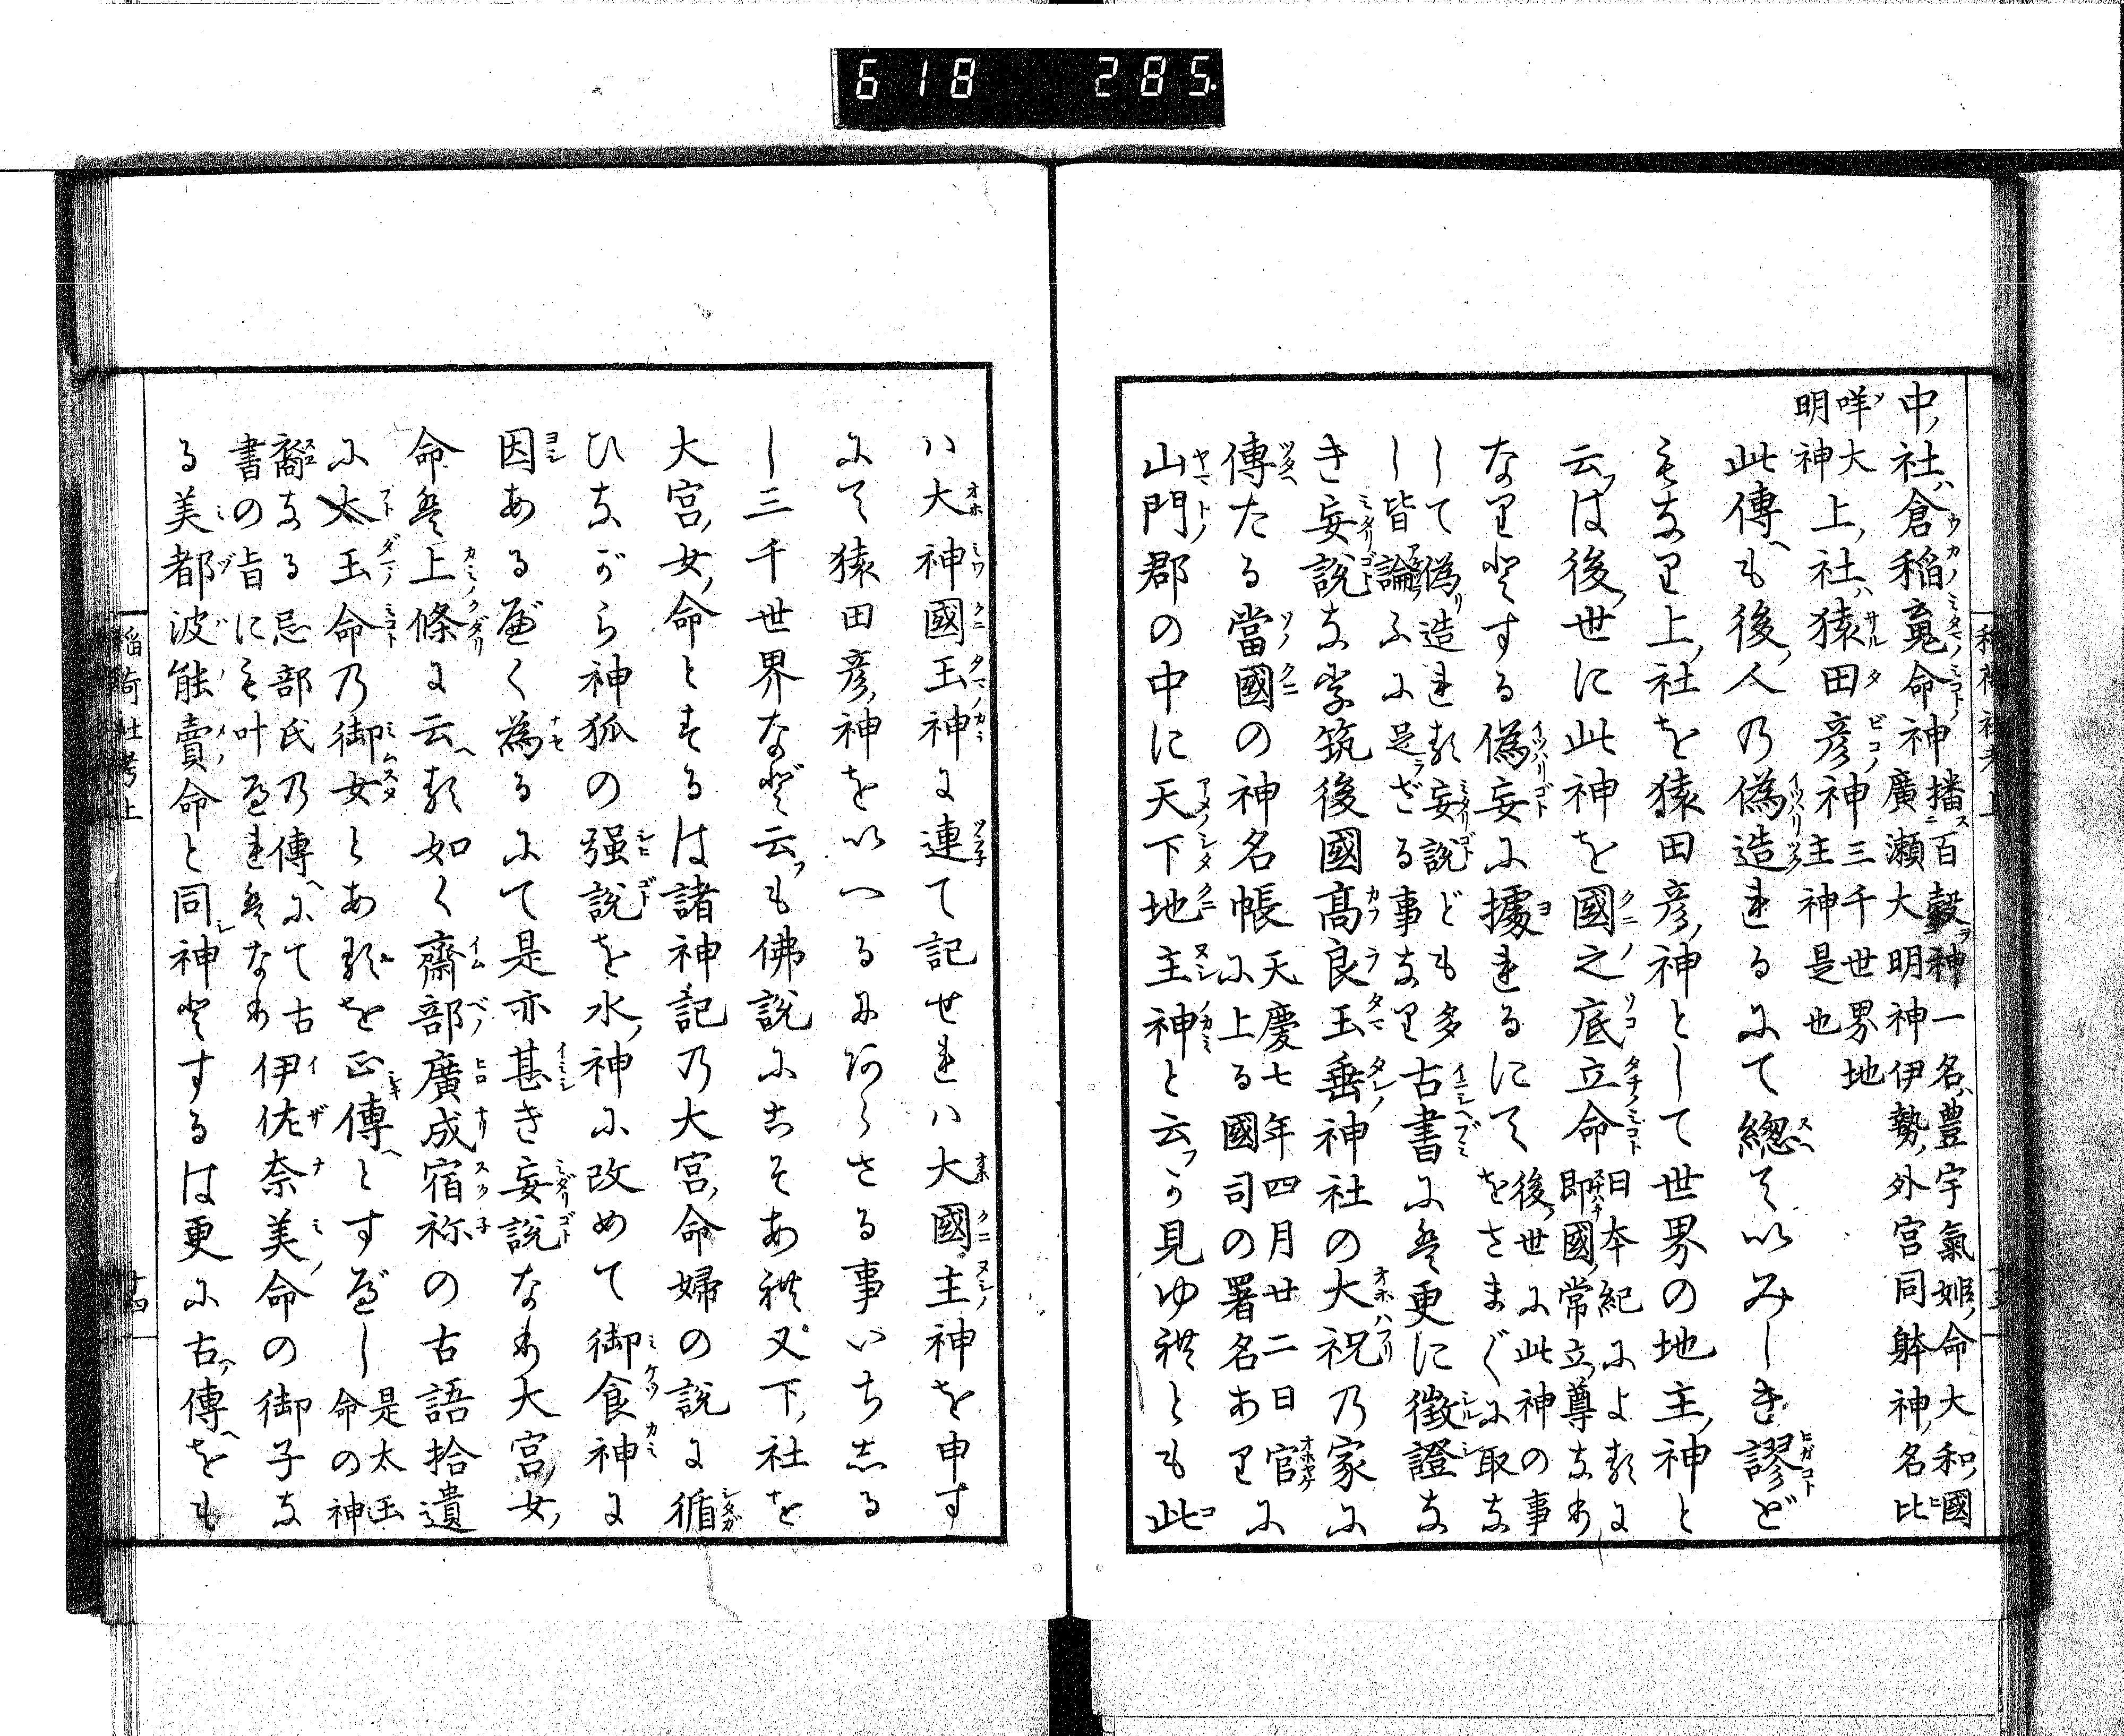 618 285
中ノ社ハ倉稲䰟命神播百穀神一名ハ豊宇氣姫ノ命大和ノ國
廣瀬大明神伊勢ノ外宮同躰神ノ名比
咩大明神上ノ社ハ猿田彦神三千世界地
主神是也
此傳ヘも後ノ人の偽造れるにて總て以みしき謬ど
もなり上ノ社を猿田彦ノ神として世界の地主ノ神と
云フは後ノ世に此神を國之底立命日本紀によるに
即國ノ常立ノ尊なり
後ノ世に此神の事
なりとする偽妄に據れるにてをさまぐに取な
して偽リ造れる妄説ども多
し皆論ふに足ざる事なり
古書には更に徴證な
き妄説なり筑後國髙良玉垂神社の大祝の家に
傳たる當國の神名帳天慶七年四月廿二日官に
に上る國司の署名あり
山門ノ郡の中に天下地主神と云フが見ゆれとも此
ハ大神國玉神に連て記せれハ大國主神を申す
にて猿田彦ノ神を以へるにあらさる事いちしる
し三千世界など云フも佛説にこそあれ又下ノ社を
大宮ノ女ノ命とするは諸神記の大宮ノ命婦の説に循
ひながら神狐の强説を水ノ神に改めて御食神に
因あるべく為るにて是亦甚き妄説なり大宮ノ女ノ
命は上條に云ヘる如く齋部廣成宿祢の古語拾遺
に太玉命の御女とあるを正傳ヘとすべし是太玉
命の神
裔なる忌部氏の傳ヘにて古
書の旨にも叶へればなり
伊佐奈美ノ命の御子な
る美都波能賣命と同シ神とするは更に古ヘ傳ヘをも
稲荷社考上
十四